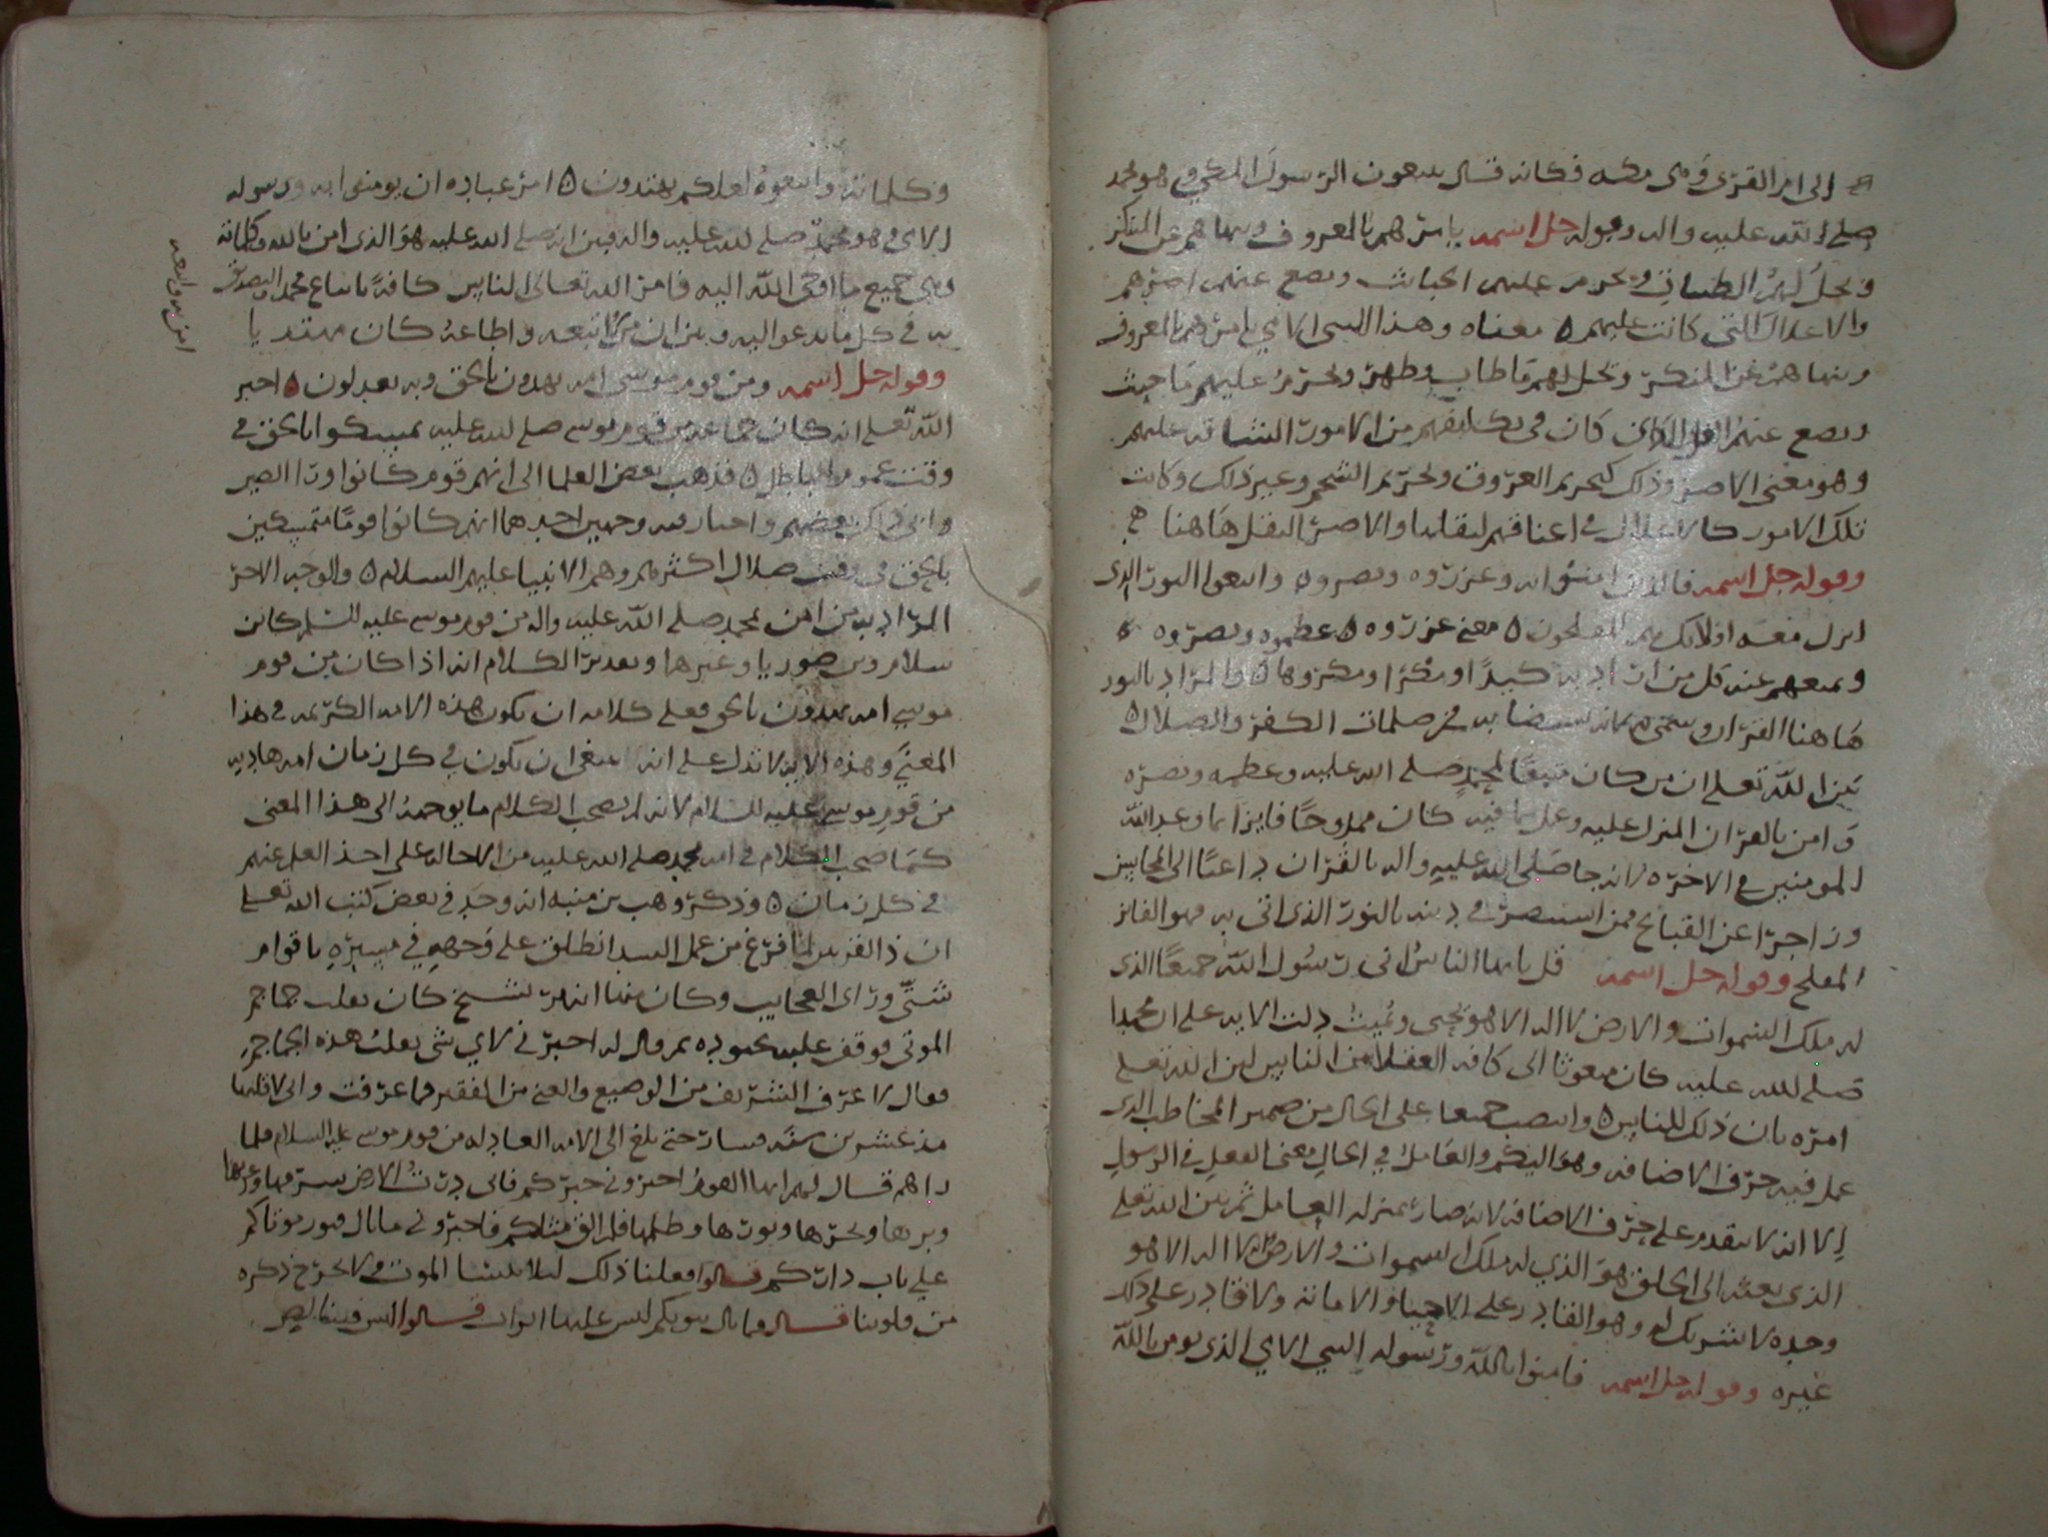 الى ام القرى وهى مكه فكانه قال يتبعون الرسول المكي وهو محمد
صلى الله عليه واله وقوله جل اسمه يامرهم بالمعروف وينهاهم عن المنكر
ويحل لهم الطيبات ويحرم عليهم الخبائث ويضع عنهم اصرهم
والاغلال التى كانت عليهم ٥ معناه وهذا النبى الامي يامرهم بالمعروف
وينهاهم عن المنكر ويحل لهم ما طاب وطهر ويحرم عليهم ما خبث
ويضع عنهم الثقل الذى كان فى تكليفهم من الامور الشاقه عليهم
وهو معنى الاصر وذلك كتحريم العروق وتحريم الشحم وغير ذلك وكانت
تلك الامور كالاغلال فى اعناقهم لثقلها والاصر الثقل هاهنا
وقوله جل اسمه فالذين امنوا به وعزروه ونصروه واتبعوا النور الذى
انزل معه اولائك هم المفلحون ٥ معنى عزروه ٥ عظموه ونصروه
ومنعهم عنه كل من اراد به كيدا او مكرا ومكروها ٥ والمراد بالنور
هاهنا القران وسمى بذلك لانه يستضا به من ظلمات الكفر والضلال ٥
بين الله تعلى ان من كان متبعا لمحمد صلى الله عليه وعظمه ونصره
وامن بالقران المنزل عليه وعمل بما فيه كان ممدوحا فايزا بما وعد الله
المومنين فى الاخره لانه جا صلى الله عليه واله بالقران داعيا الى المحاسن
وزاجرا عن القبايح فمن استبصر فى دينه بالنور الذى اتى به فهو الفايز
المفلح وقوله جل اسمه قل يايها الناس انى رسول الله جميعا الذى
له ملك السموات والارض لا اله الا هو يحيى ويميت دلت الايه على ان محمدا
صلى الله عليه كان مبعوثا الى كافه العقلا من الناس لان الله تعلى
امره بان ذلك للناس ٥ وانتصب جميعا على الحال من ضمير المخاطب الذى
عمل فيه حرف الاضافه وهو اليكم والعامل فى الحال معنى الفعل فى الرسول
الا انه لا يتقدم على حرف الاضافه لانه صار بمنزله العامل ثم بين الله تعلى
الذى بعثه الى الخلق هو الذي له ملك السموات والارض لا اله الا هو
وحده لا شريك له وهو القادر على الاحيا والاماته ولا قادر على ذلك
غيره وقوله جل اسمه فامنوا بالله ورسوله النبي الامي الذى يومن بالله
وكلماته واتبعوه لعلكم تهتدون ٥ امر عباده ان يومنوا به ورسوله
الامى وهو محمد صلى الله عليه واله وبين انه صلى الله عليه هو الذى امن بالله وكلماته
وهى جميع ما اوحى الله اليه فامر الله تعالى الناس كافة باتباع محمد والتصديق
به فى كل ما يدعوا اليه وبين ان من اتبعه واطاعه كان مهتديا
وقوله جل اسمه ومن قوم موسى امه يهدون بالحق وبه يعدلون ٥ اخبر
الله تعلى انه كان جماعه من قوم موسى صلى الله عليه تمسكوا بالحق فى
وقت عموم الباطل ٥ فذهب بعض العلما الى انهم قوم كانوا ورا الصين
وجهين احدهما انهم كانوا قوما متمسكين
بالحق فى وقت ضلال اكثرهم وهم الانبيا عليهم السلام ٥ والوجه الاخر
المراد به من امن بمحمد صلى الله عليه واله من قوم موسى عليه السلم كابن
سلام وبن صوريا وغيرها وتقدير الكلام انه اذا كان من قوم
موسى امه يهدون بالحق فعلى كلامه ان تكون هذه الامه الكريمه فى هذا
المعنى وهذه الايه لا تدل على انه ينبغى ان يكون فى كل زمان امه هاديه
من قوم موسى عليه السلام لانه لم يصحب الكلام ما يوجبه الى هذا المعنى
كما صحب الكلام فى امه محمد صلى الله عليه من الاحاله على اخذ العلم عنهم
فى كل زمان ٥ وذكر وهب بن منبه انه وجد فى بعض كتب الله تعلى
ان ذا القرنين لما فرغ من عمل السد انطلق على وجهه فى مسيره باقوام
شتى وراى العجايب وكان منها انه مر بشيخ كان يقلب جماجم
الموتى فوقف عليه بجنوده ثم قال له اخبرنى لاي شى تقلب هذه الجماجم
فقال لا عرف الشريف من الوضيع والغنى من الفقير فما عرفت وانى لاقلبها
مذ عشرين سنه فسار حتى بلغ الى الامه العادله من قوم موسى عليه السلام فلما
راهم قال لهم ايها القوم اخبرونى خبركم فانى درت الارض شرقها وغربها
وبرها وبحرها ونورها وظلمها فلم الق مثلكم فاخبرونى ما بال قبور موتاكم
على باب داركم قالوا فعلنا ذلك ليلا ننسا الموت ولا يخرج ذكره
من قلوبنا قال فما بال بيوتكم ليس عليها ابواب قالوا ليس فينا لص